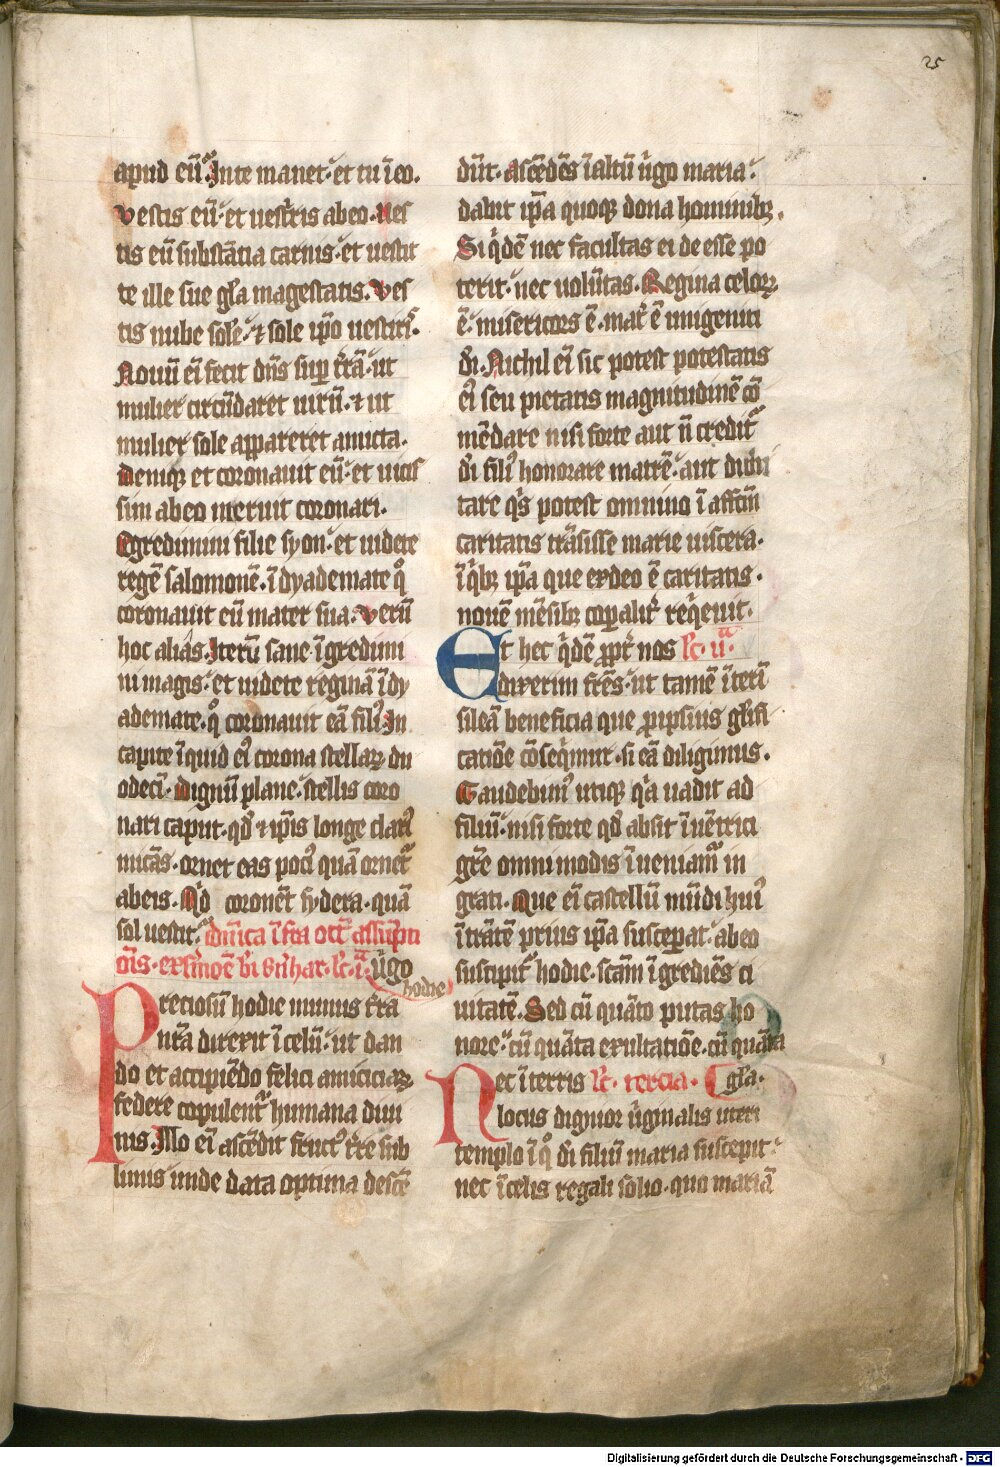 25
apud eũ. In te manet. et tu ĩ eo.
Vestis eũ. et uestĩris ab eo. Ves
tis eũ substãtia carnis. et uestit
te ille sue gl̃a magestatis. Ves
tis nube solẽ. ⁊ sole ip̃o uestirꝭ.
Nouũ eĩ fecit dñs sup̲ tr̃ã. ut
mulier circũdaret uirũ. ⁊ ut
mulier sole appareret amicta.
Deniqꝫ et coronauit eũ. et uicis
sim ab eo meruit coronari.
Egredimini filie syon. et uidete
regẽ salomonẽ. ĩ dyademate qͦ
coronauit eũ mater sua. Verũ
hoc aliãs. Iterũ sane ĩgredimi
ni magis. et uidete reginã ĩ dy
ademate. qͦ coronauit eã filiꝰ. In
capite ĩquid eiꝰ corona stellarꝝ du
odecĩ. Dignũ plane. stellis coro
nari caput. qd̃ ⁊ ip̃is longe clariꝰ
micãs. ornet eas pociꝰ quã ornet̃
ab eis. Qd̃ coronẽt sydera. quã
sol uestit. Dñica ĩfra oct̃ assũpti
õis. ex sr̃moẽ bt̃i br̃nhar. lc̃. i.ᵃ ũgo
hodie
Preciosũ hodie munus tr̃a
nr̃a direxit ĩ celũ. ut dan
do et accipiẽdo felici amiciciarꝝ
federe copulent̃ humana diui
nis. Illo eĩ ascẽdit fructꝰ tr̃e sub
limis unde data optima descẽ
dũt. Ascẽdẽs ĩ altũ ũgo maria.
dabit ip̃a quoqꝫ dona hominibꝫ.
Siqͥdẽ nec facultas ei deesse po
terit. nec uolũtas. Regina celorꝝ
ẽ. misericors ẽ. mat̃ ẽ unigeniti
dĩ. Nichil eĩ sic potest potestatis
eiꝰ seu pietatis magnitudinẽ cõ
mẽdare nisi forte aut ñ credit̃
dĩ filiꝰ honorare matrẽ. aut dubi
tare qͥs potest omnino ĩ affcm̃
caritatis trãsisse marie uiscera.
ĩ qͥbꝫ ip̃a que ex deo ẽ caritatis.
nouẽ mẽsibꝫ corp̲alit̃ reqͥeuit.
Et hec qͥdẽ ꝓpt̃ nos lc̃. ii.ᵃ
dixerim fr̃es. ut tamẽ ĩterĩ
sileã beneficia que ꝓ ipsius gl̃ifi
catiõe cõseqͥmur. si eã diligimus.
Gaudebimꝰ utiqꝫ qͥa uadit ad
filiũ. nisi forte qd̃ absit ĩuẽtrici
gr̃e omnimodis ĩueniam̃ in
grati. Que eĩ castellũ mũdi huiꝰ
ĩtrãtẽ prius ip̃a suscep̲at. ab eo
suscipit̃ hodie. sc̃am ĩgrediẽs ci
uitatẽ. Sed cũ quãto putas ho
nore. cũ quãta exultatiõe. cũ quãta
Nec ĩ terris lc̃. tercia. gl̃a.
locus dignior ũginalis uteri
templo ĩ qͦ dĩ filiũ maria suscepit.
nec ĩ celis regali solio. quo mariã
Digitalisierung gefördert durch die Deutsche Forschungsgemeinschaft - DFG